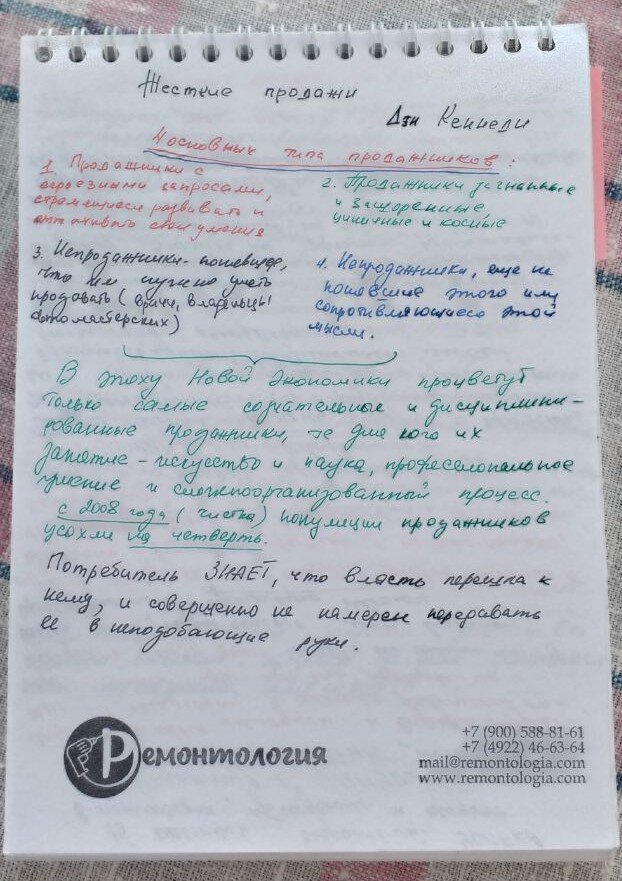 Жесткие продажи
Дэн Кеннеди
4 основных типа продажников:
1. Продажники с
серьезными запросами,
стремящиеся развивать и
оттачивать свои умения
2. Продажники загнанные
и зашоренные
циничные и косные
3. Непродажники - понявшие,
что им нужно уметь
продавать (врачи, владельцы
автомастерских)
4. Непродажники, еще не
понявшие этого или
сопротивляющиеся этой
мысли.
В эпоху Новой Экономики процветут
только самые сознательные и дисциплини-
рованные продажники, те для кого их
занятие - искусство и наука, профессиональное
умение и сложноорганизованный процесс.
с 2008 года (чистка) популяции продажников
усохли на четверть.
Потребитель ЗНАЕТ, что власть перешла к
нему, и совершенно не намерен передавать
ее в неподобающие руки.
Ремонтология
+7 (900) 588-81-61
+7 (4922) 46-63-64
mail@remontologia.com
www.remontologia.com